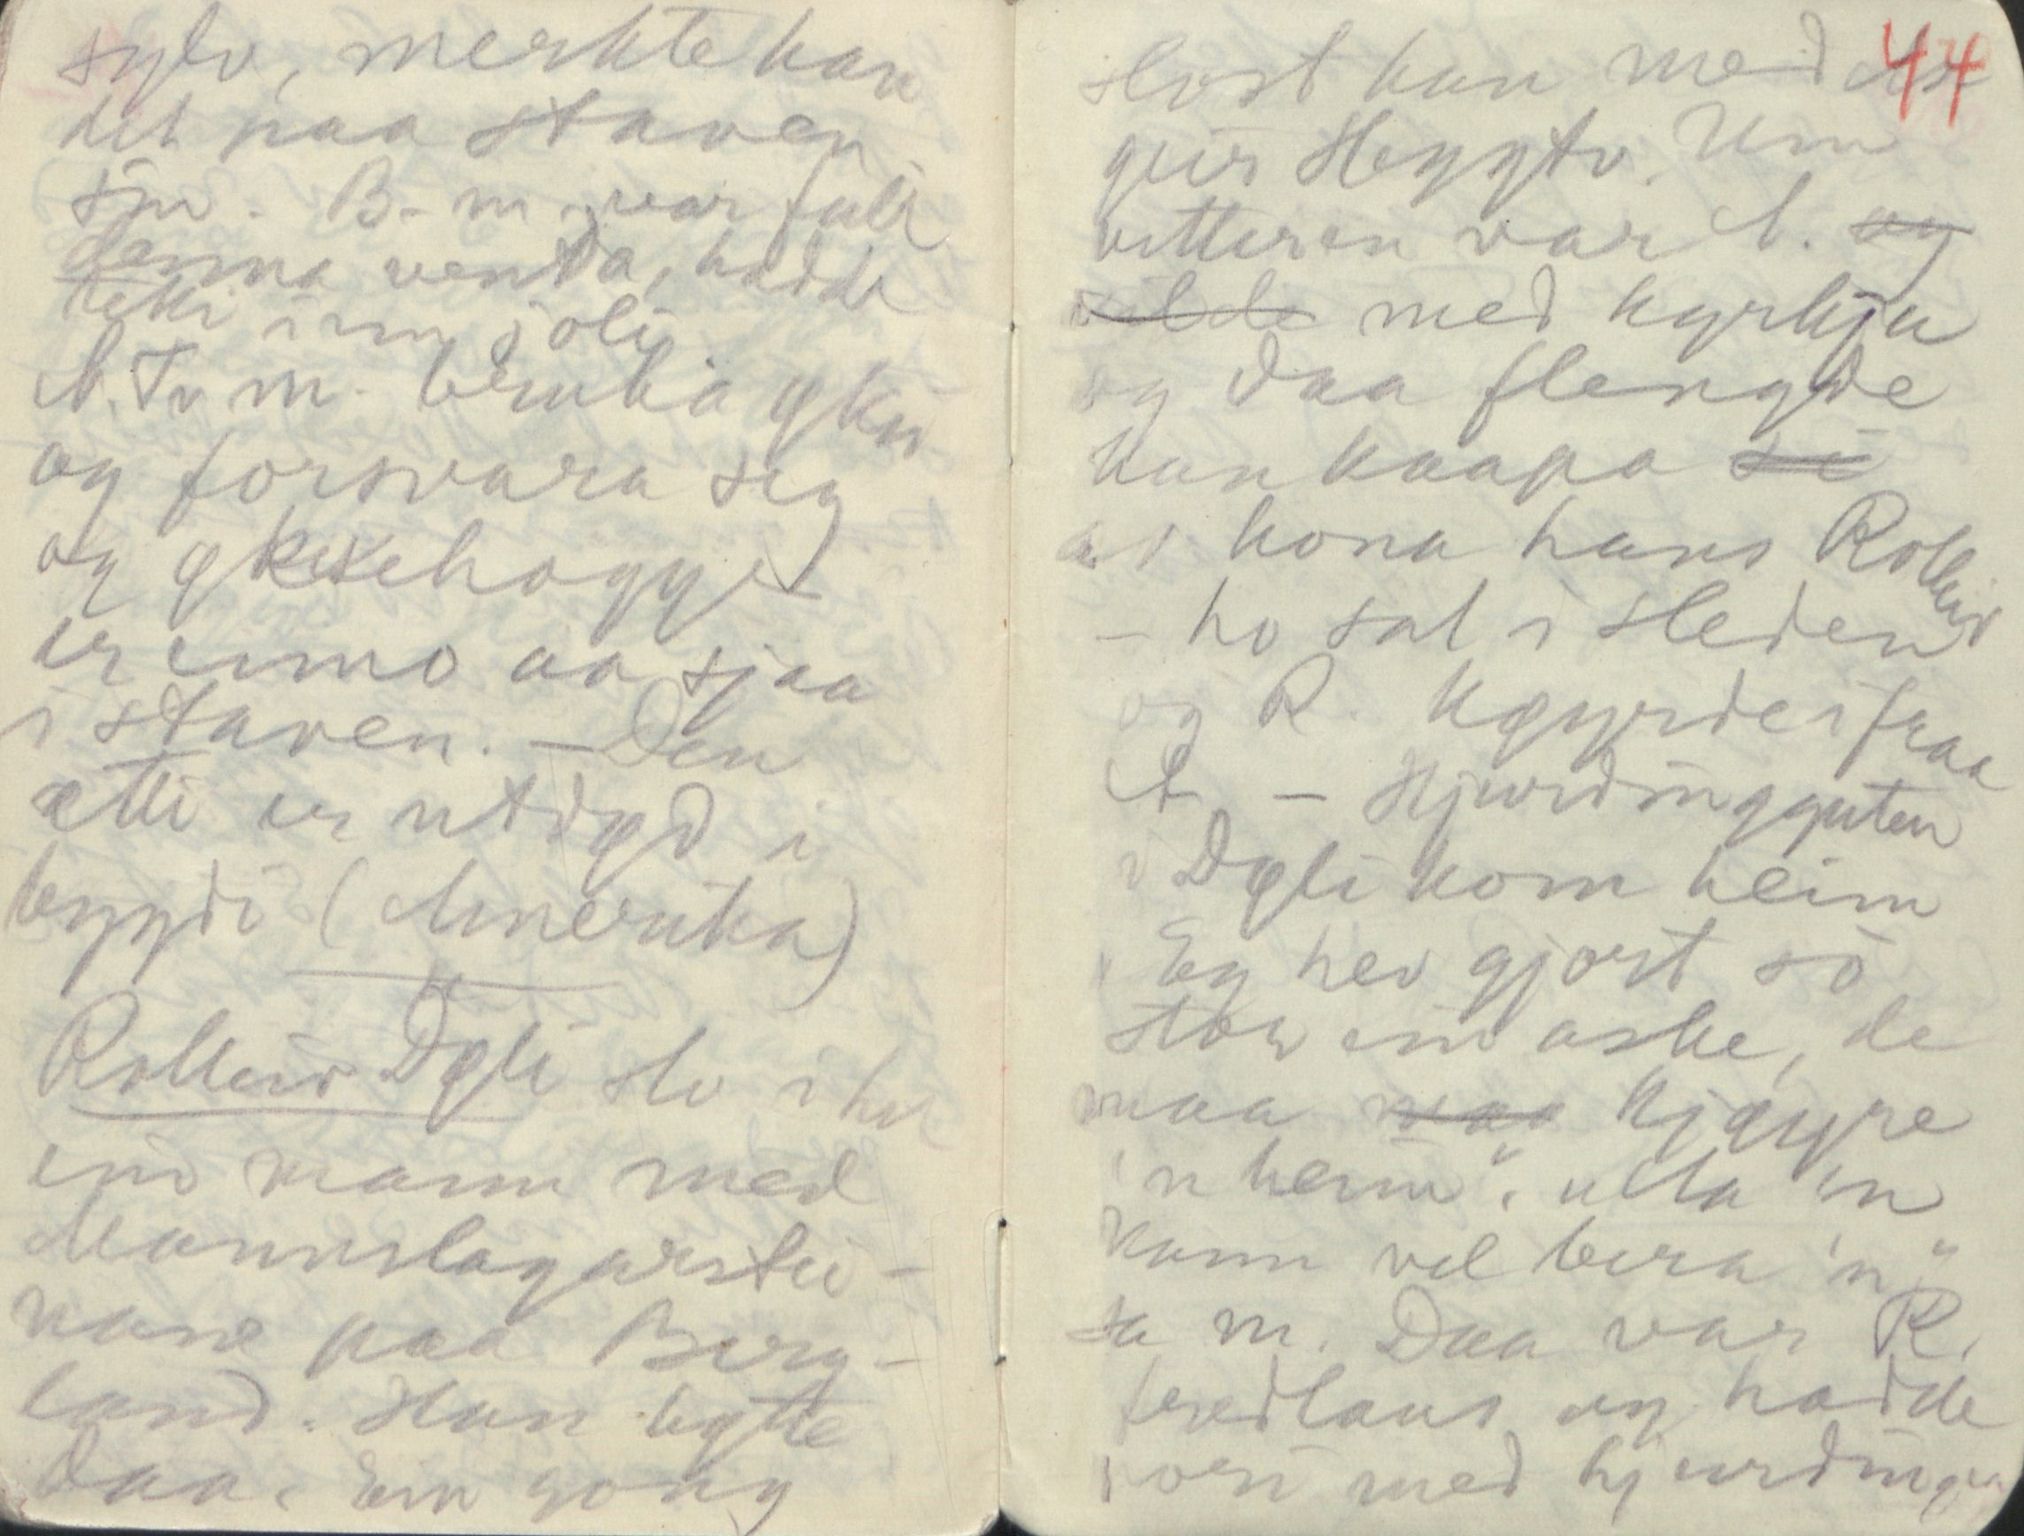 sylv, merkte han
det paa staven
sin. B.-m. var full
denna venta, hadde
teki inn joli
A. Tv m. bruka øksi
og forsvara seg
og øksehogget
er eimo aa sjaa
i staven. – Den
ætti er utdød i
bygdi (Amerika)
Rolleiv Døli slo i hel
ein mann med
Mannslagarstei-
nane paa Berg-
land. Han bøtte
daa. Ein gong
slost han med As
geir Heggtv. Um
vetteren var A. og
vilde med kyrkju
og daa flengde
han kaapa si
av kona hans Rolleiv
– ho sat i sleden
og R. køyrde ifraa
A. – Hjuringguten
i Døli kom heim
"Eg hev gjort so
stor ein aske, de
maa maa kjøyre
'n heim". "Ulla 'n
kann vel bera 'n"
sa m. Daa var R.
fredlaus og hadde
vori med hjuringen
44